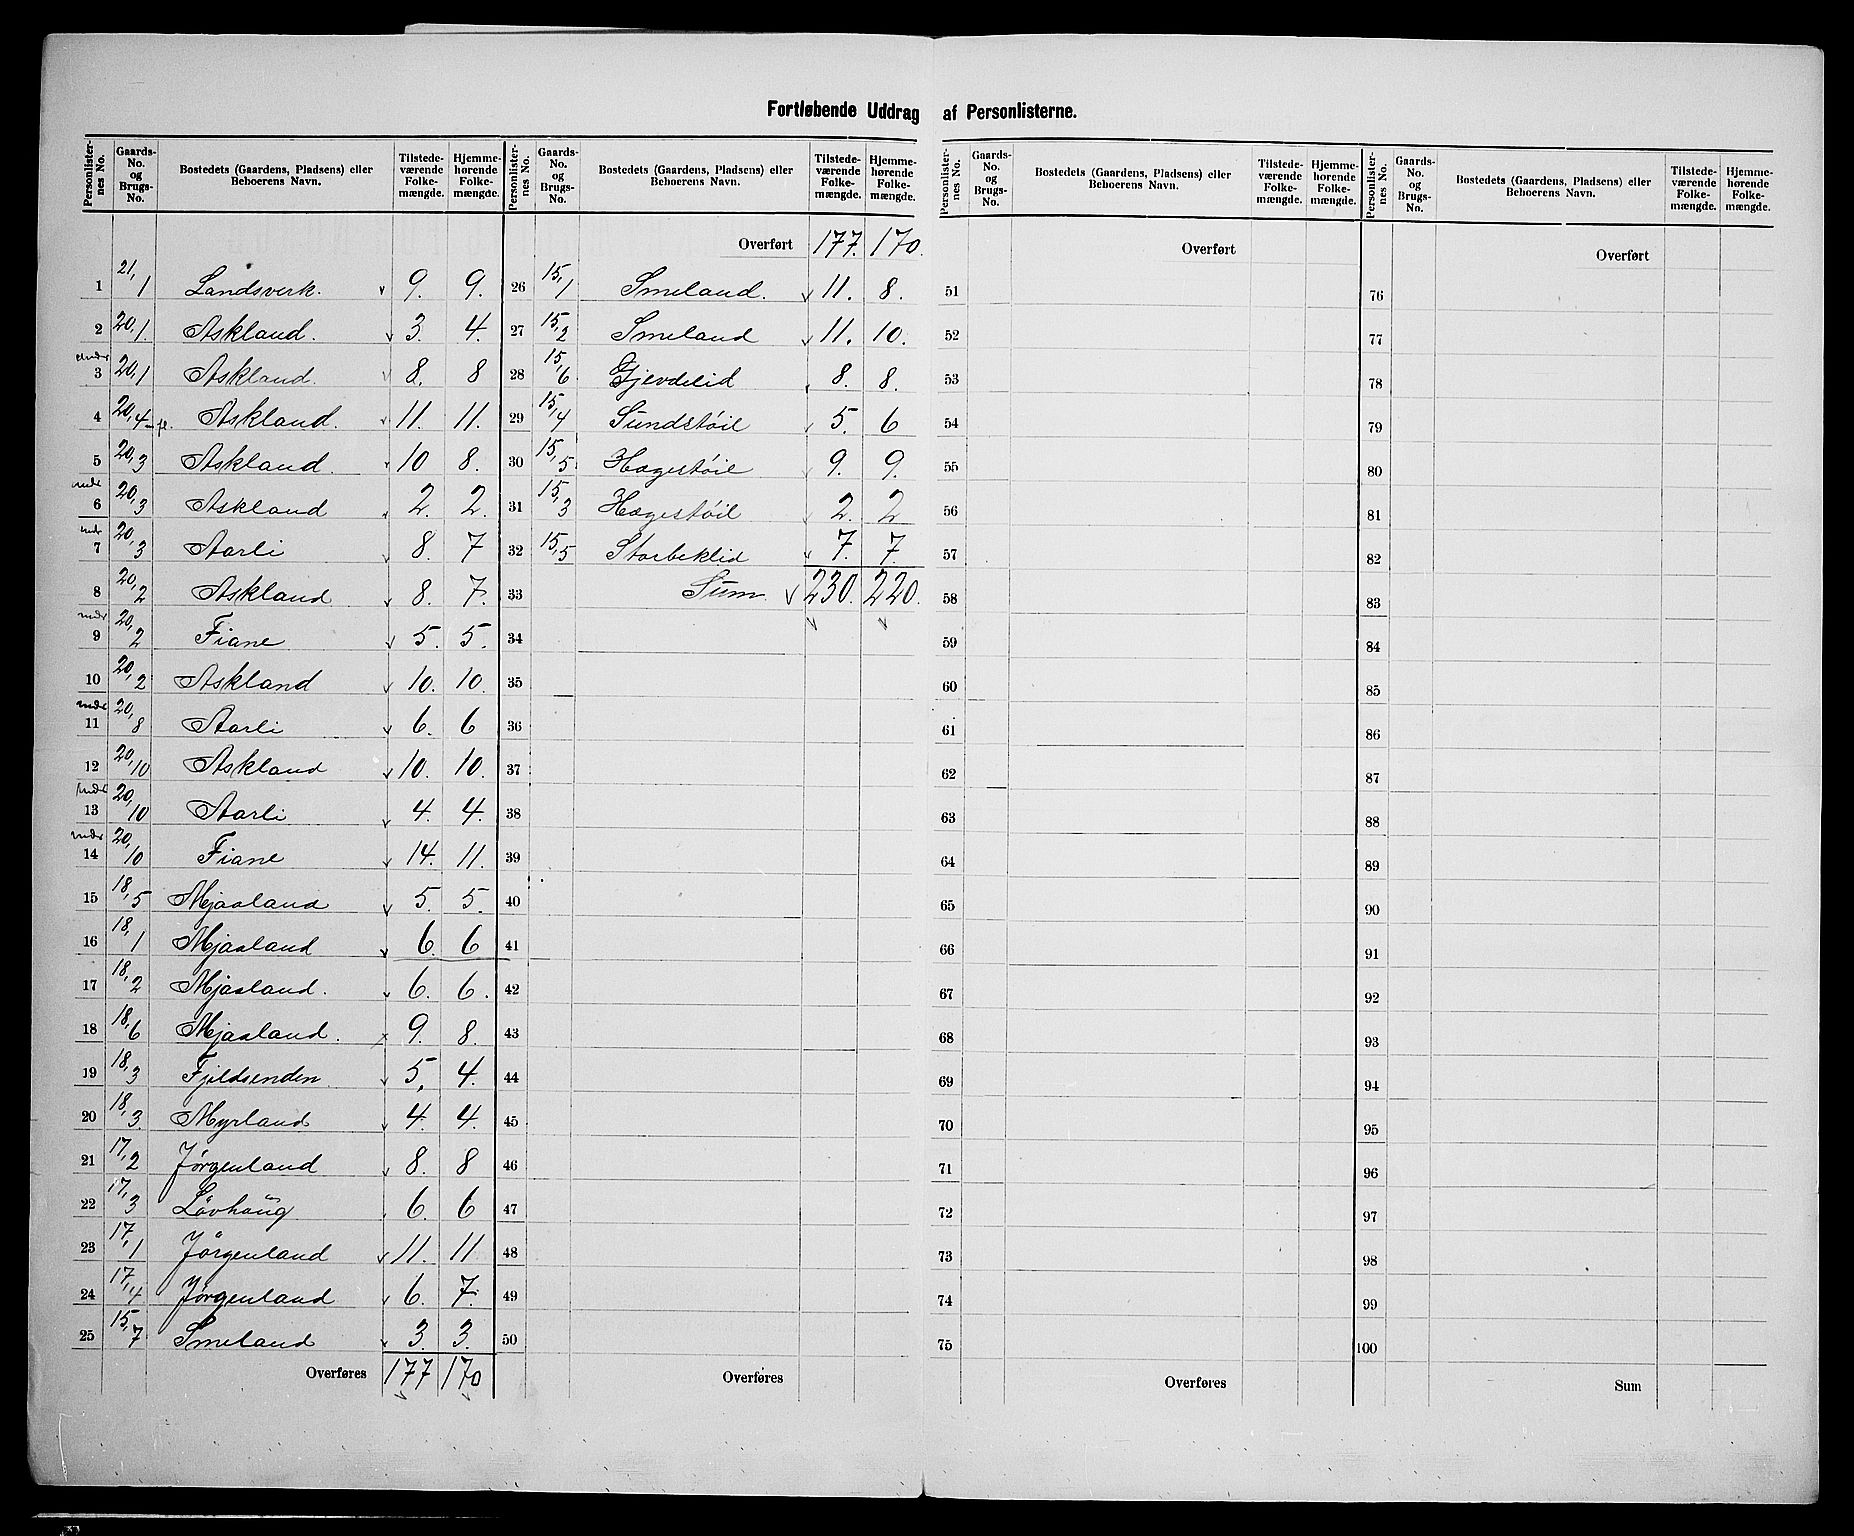 Fortløbende Uddrag af Personlisterne.
Personlister-nes No. Gaards-No. og Brugs-No. Bostedets (Gaardens, Pladsens) eller Beboerens Navn. Tilstede-værende Folke-mængde. Hjemme-hørende Folke-mængde.
1 21,1 Landsverk. 9. 9.
2 20,1. Askland. 3. 4.
3 20,1 Askland. 8. 8
4 20,4 Askland. 11. 11.
5 20,3 Askland. 10 8.
6 20,3 Askland 2. 2.
7 20,3 Aarli 8. 7
8 20,2 Askland 8. 7.
9 20,2 Fiane 5. 5.
10 20,2 Askland 10. 10.
11 20,8 Aarli 6. 6
12 20,10 Askland 10. 10.
13 20,10 Aarli 4. 4.
14 20,10 Fiane 14. 11.
15 18,5 Mjaaland 5. 5.
16 18,1 Mjaaland 6. 6
17 18,2 Mjaaland. 6. 6.
18 18,6 Mjaaland. 9. 8.
19 18,3 Fjeldsenden 5, 4.
20 18,3. Myrland 4. 4.
21 17,2 Jørgenland 8. 8
22 17,3 Løvhaug 6. 6
23 17,1 Jørgenland 11. 11
24 17,4 Jørgenland 6. 7.
25 15,7 Smeland 3. 3.
Overføres 177 170
Personlister-nes No. Gaards-No. og Brugs-No. Bostedets (Gaardens, Pladsens) eller Beboerens Navn. Tilstede-værende Folke-mængde. Hjemme-hørende Folke-mængde.
Overført 177. 170.
26 15,1 Smeland. 11. 8.
27 15,2 Smeland 11. 10.
28 15,6 Gjevdelid 8. 8.
29 15,4 Sundstøil 5. 6
30 15,5 Hægestøil 9. 9.
31 15,3 Hægestøil 2. 2
32 15,5 Storbeklid 7. 7.
33 Sum. 230. 220.
34
35
36
37
38
39
40
41
42
43
44
45
46
47
48
49
50
Overføres
Personlister-nes No. Gaards-No. og Brugs-No. Bostedets (Gaardens, Pladsens) eller Beboerens Navn. Tilstede-værende Folke-mængde. Hjemme-hørende Folke-mængde.
Overført
51
52
53
54
55
56
57
58
59
60
61
62
63
64
65
66
67
68
69
70
71
72
73
74
75
Overføres
Personlister-nes No. Gaards-No. og Brugs-No. Bostedets (Gaardens, Pladsens) eller Beboerens Navn. Tilstede-værende Folke-mængde. Hjemme-hørende Folke-mængde.
Overført
76
77
78
79
80
81
82
83
84
85
86
87
88
89
90
91
92
93
94
95
96
97
98
99
100
Sum